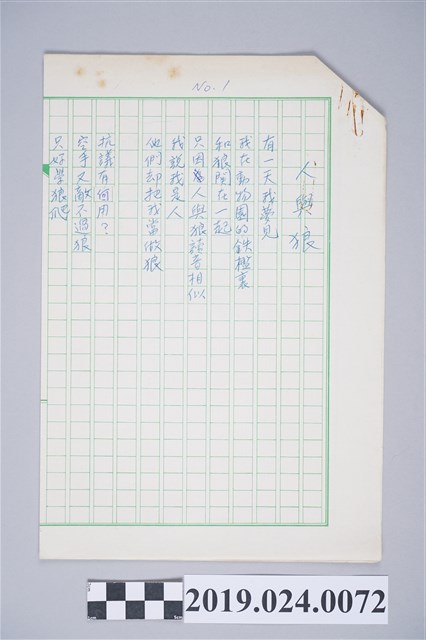 No. 1
人與狼
有一天我夢見
我在動物園的鉄檻裏
和狼関在一起
只因人與狼諧音相似
我說我是人
他們却把我當做狼
抗議有何用？
空手又敵不過狼
只好學狼爬
2019.024.0072